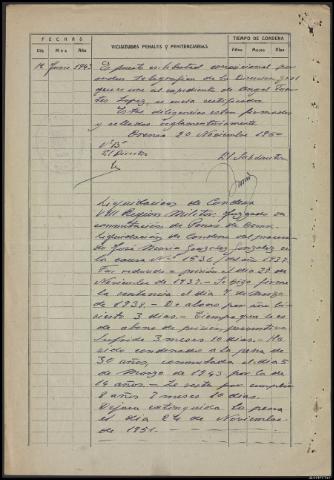 FECHAS
VICISITUDES PENALES Y PENITENCIARIAS
TIEMPO DE CONDENA
Día Mes Año
Años Meses Días
14 Junio 1943 Es puesto en libertad condicional por
orden telegráfica de la Dirección gral
que se une al expediente de Angel
López, se envía certificado.
Estas diligencias están firmadas
y selladas reglamentariamente.
Orense 20 Noviembre 1950
Vº Bº
El Director El Subdirector
Liquidación de Condena
VIII Región Militar. Juzgado de
conmutación de Penas de
Liquidación de Condena del
José María González González en
la causa Nº 1536 del año 1937.
Fué reducido a prisión el día 29 de
Noviembre de 1937. Se hizo firme
la sentencia el día 9 de Marzo
de 1938. De abono por año
3 días. Tiempo que le es
de abono de prisión preventiva
sufrida 3 meses 10 días. Ha
sido condenado a la pena de
30 años, conmutada el día 5
de Marzo de 1943 por la de
14 años. Le resta por cumplir
8 años 7 meses 10 días.
Dejará extinguida la pena
el día 24 de Noviembre
de 1951.